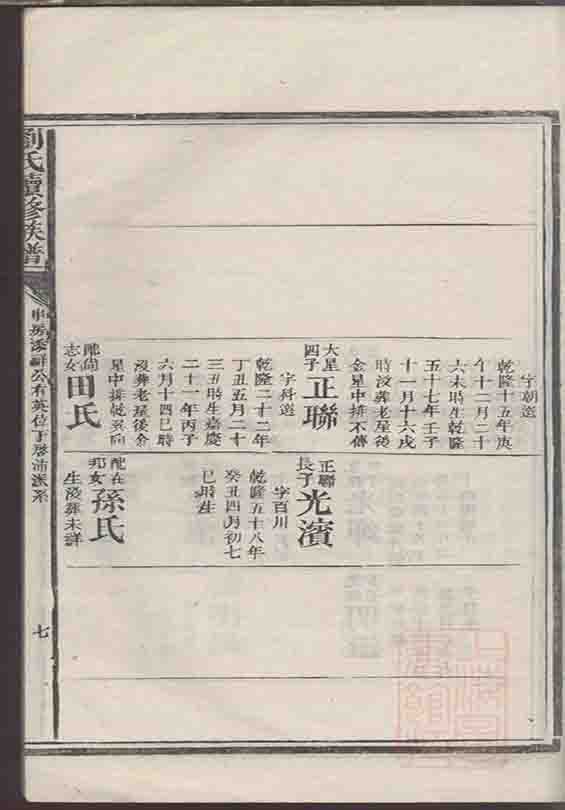 字朝選
乾隆十五年庚
午十二月二十
六未時生乾隆
五十七年壬子
十一月十六戌
時沒葬老屋後
金星中排不傳
大星四子
正聯
字科選
乾隆二十二年
丁丑五月二十
三丑時生嘉慶
二十一年丙子
六月十四巳時
沒葬老屋後金
星中排乾巽向
配尙志女
田氏
正聯長子
光濱
字百川
乾隆五十八年
癸丑四月初七
巳時生
配在邦女
孫氏
生沒葬未詳
劉氏續修族譜
公有英位下啓沛派系
七